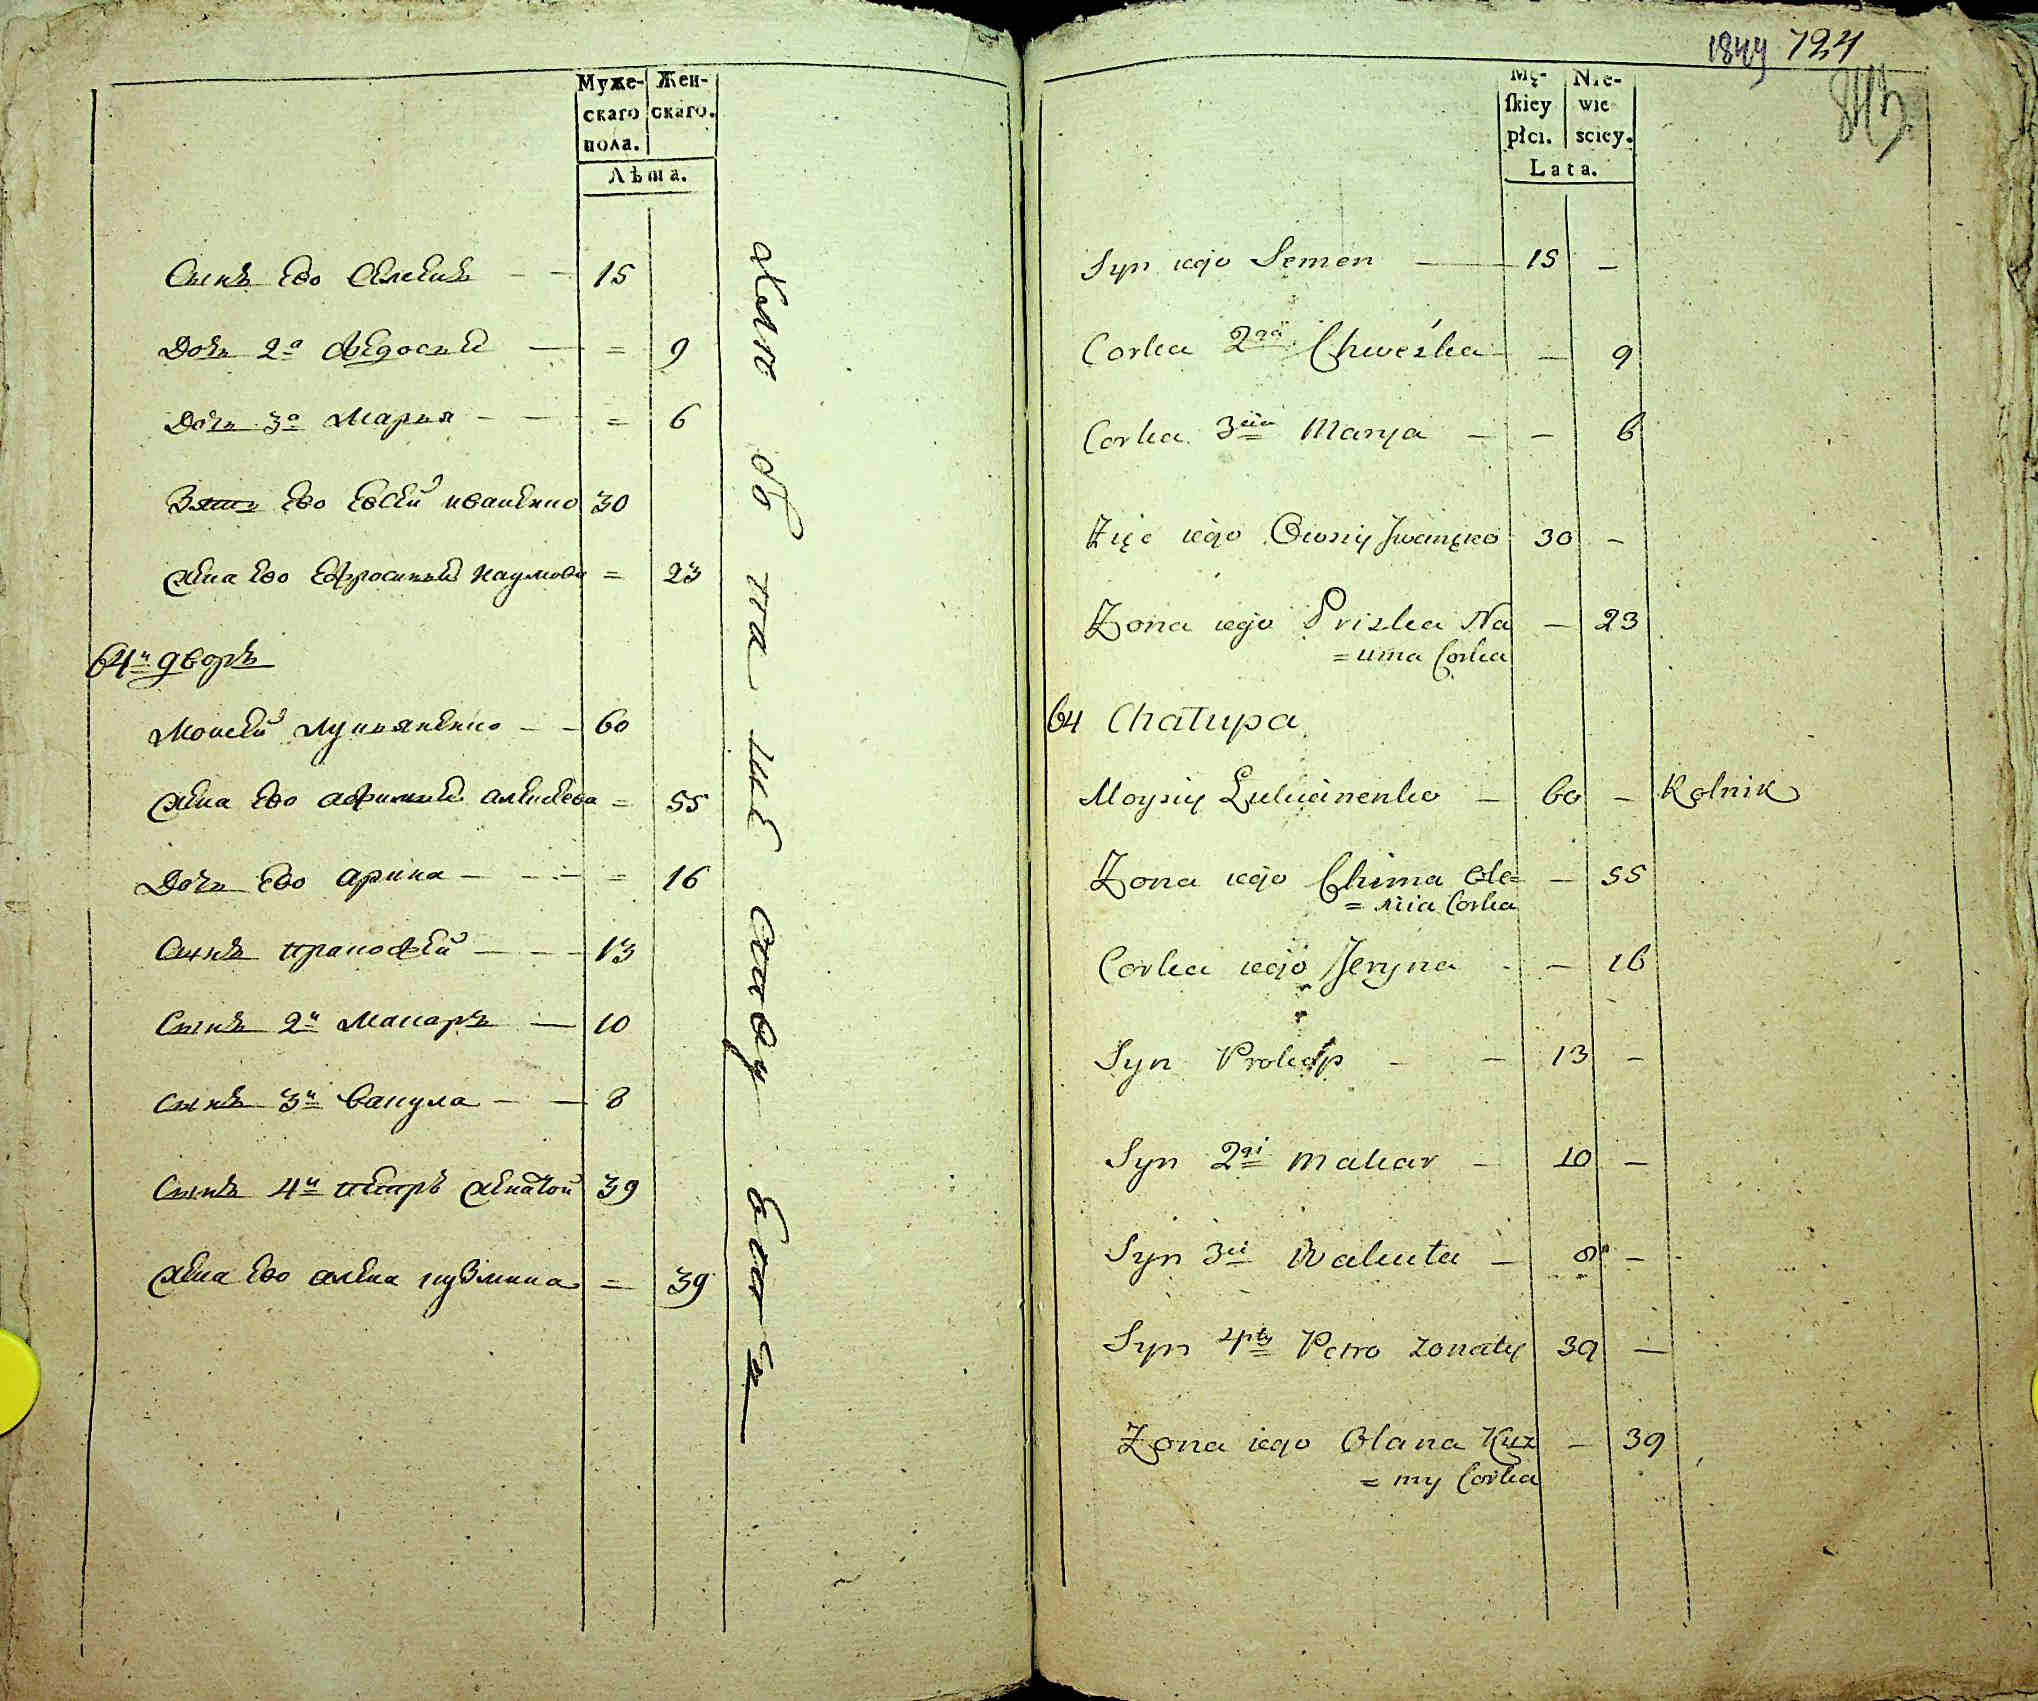 Муже-
скаго
пола.
Жен-
скаго.
Лѣта.
Сынъ Ево 15
Дочь 2а Федосия = 9
Дочь 3а Мария = 6
Зять Ево Евсей иваненко 30
жена Ево Ефросиния наумова = 23
64й дворъ
Моисей лукяненко 60
жена Ево афимия = 55
Дочь Ево арина = 16
Сынъ прокофей 13
Сынъ 2й Макаръ 10
Сынъ 3й вакула 8
Сынъ 4й петръ женатой 39
жена Ево алена кузмина = 39
1849 724
Mę-
skiey
płci.
Nie-
wie
sciey.
Lata.
Syn iego Semen 15 –
Corka 2ga Chweśka – 9
Corka 3cia Marya – 6
Zięć iego Owsiy Iwanęko 30 –
Zona iego Priska Na – 23
= uma Corka
64 Chałupa
Moysiy Łukianenko – 60 – Rolnik
Zona iego Chima Ole= – 55
= xiia Corka
Corka iego Jeryna – 16
Syn Prokop – 13 –
Syn 2gi Makar – 10 –
Syn 3ci Wakuła – 8 –
Syn 4ty Petro zonaty 39 –
Zona iego Olana Kuz – 39
= my Corka